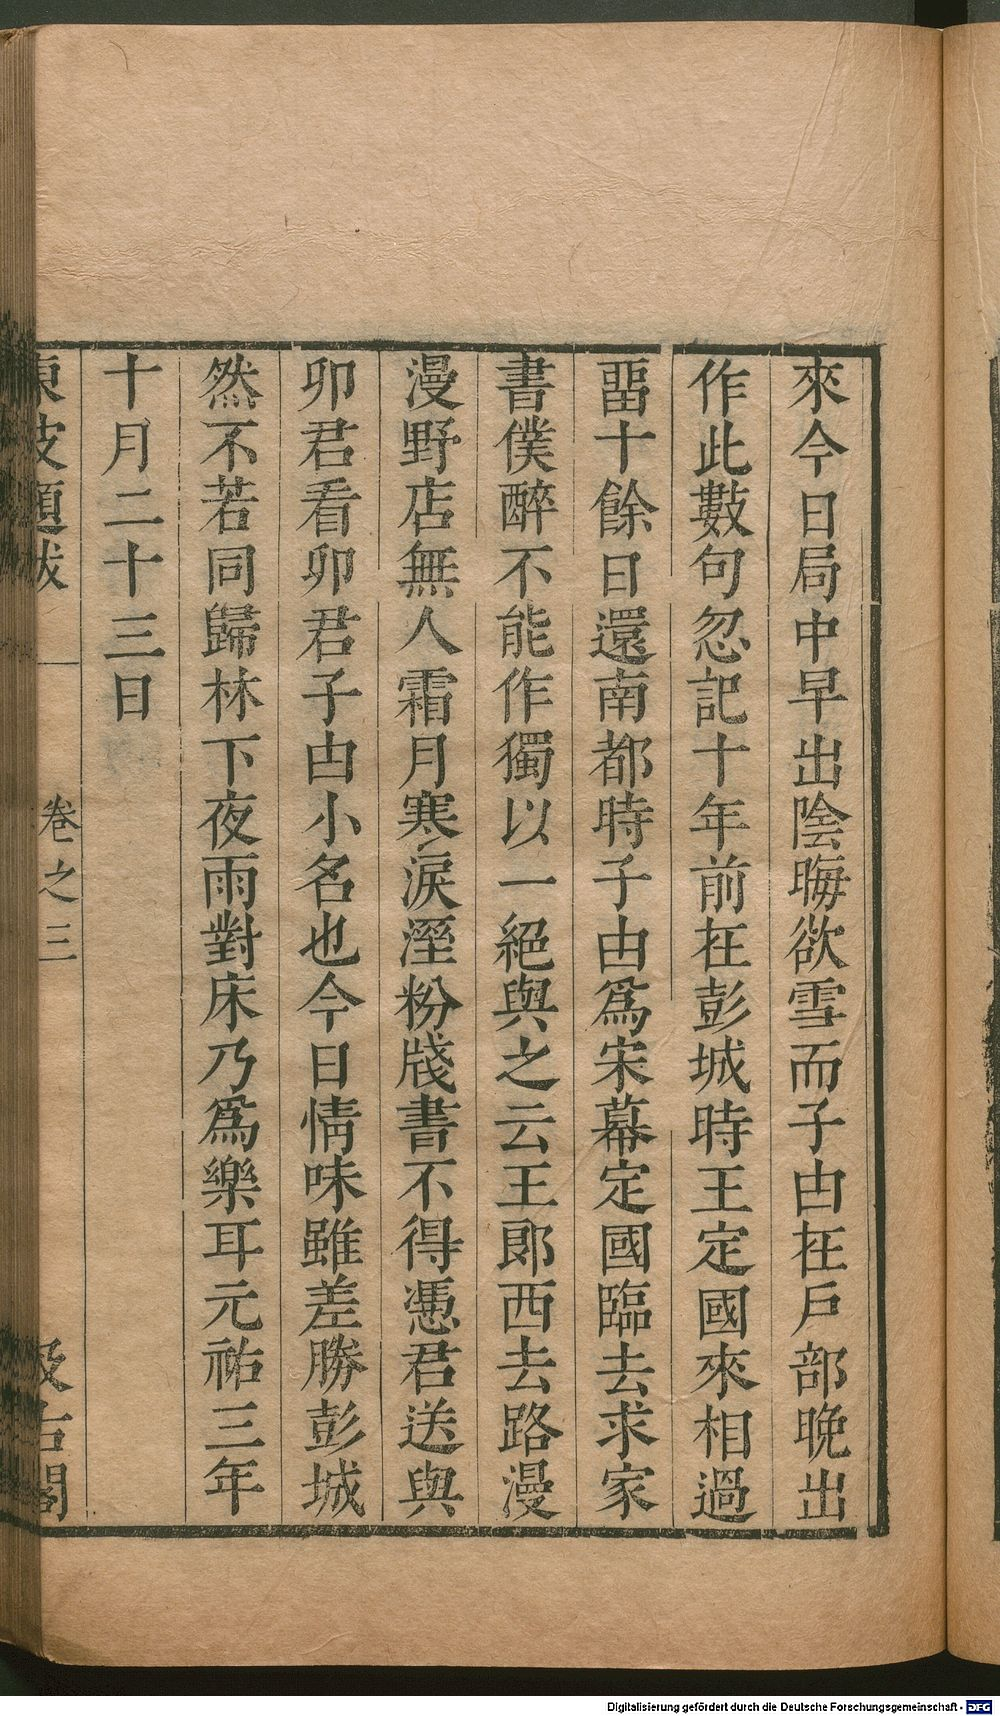 來今日局中早出陰晦欲雪而子由在戶部晚出
作此數句忽記十年前在彭城時王定國來相過
畱十餘日還南都時子由爲宋幕定國臨去求家
書僕醉不能作獨以一絕與之云王郞西去路漫
漫野店無人霜月寒淚溼粉牋書不得憑君送與
卯君看卯君子由小名也今日情味雖差勝彭城
然不若同歸林下夜雨對床乃爲樂耳元祐三年
十月二十三日
東坡題跋 卷之三 汲古閣
Digitalisierung gefördert durch die Deutsche Forschungsgemeinschaft - DFG